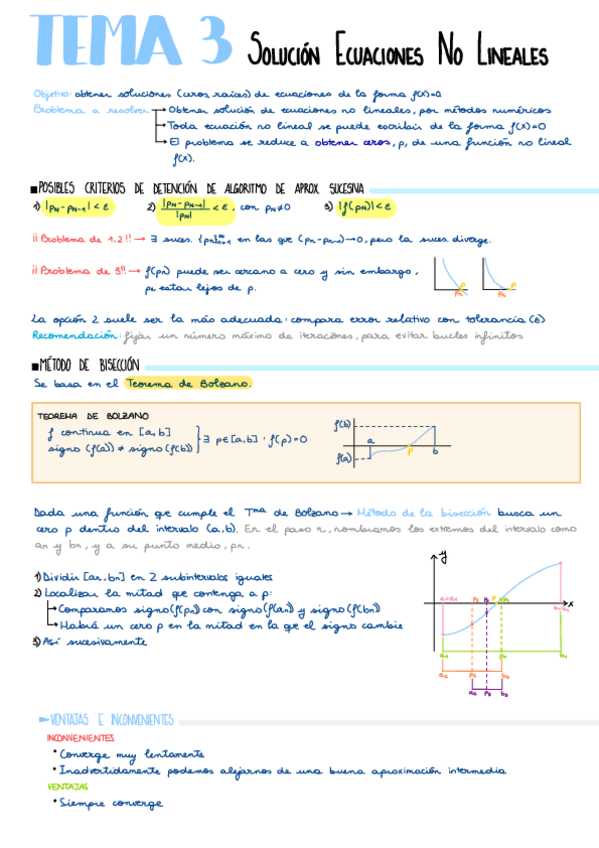 TEMA 3 SOLUCIÓN ECUACIONES NO LINEALES
Objetivo: obtener soluciones (ceros, raíces) de ecuaciones de la forma f(x)=0
Problema a resolver → Obtener solución de ecuaciones no lineales, por métodos numéricos
→ Toda ecuación no lineal se puede escribir de la forma f(x)=0
→ El problema se reduce a obtener ceros, p, de una función no lineal
f(x).
■POSIBLES CRITERIOS DE DETENCIÓN DE ALGORITMO DE APROX. SUCESIVA
1) |pN-pN-1|<ε 2) |pN-pN-1|/|pN| <ε, con pN≠0 3) |f(pN)|<ε
¡¡Problema de 1,2!! → ∃ suces. {pn}∞n=1 en las que (pn-pn-1)→0, pero la suces. diverge.
¡¡Problema de 3!! → f(pn) puede ser cercano a cero y sin embargo,
pn estar lejos de p.
p
pn
p
pn
La opción 2 suele ser la más adecuada: compara error relativo con tolerancia (ε)
Recomendación: fijar un número máximo de iteraciones, para evitar bucles infinitos
■MÉTODO DE BISECCIÓN
Se basa en el Teorema de Bolzano.
TEOREMA DE BOLZANO
f continua en [a,b]
signo (f(a)) ≠ signo (f(b)) } ∃ p∈[a,b] : f(p)=0
f(b)
a
p
b
f(a)
Dada una función que cumple el Tma de Bolzano → Método de la bisección busca un
cero p dentro del intervalo (a,b). En el paso n, nombramos los extremos del intervalo como
an y bn, y a su punto medio, pn.
1) Dividir [an,bn] en 2 subintervalos iguales
2) Localizar la mitad que contenga a p:
→ Comparamos signo(f(pn)) con signo(f(an)) y signo(f(bn))
→ Habrá un cero p en la mitad en la que el signo cambie
3) Así sucesivamente
y
a=a1 p2 p3 p p1
b=b1
x
a1 p1 b1
a2 p2 b2
a3 p3 b3
►VENTAJAS E INCONVENIENTES
INCONVENIENTES
• Converge muy lentamente
• Inadvertidamente podemos alejarnos de una buena aproximación intermedia
VENTAJAS
• Siempre converge